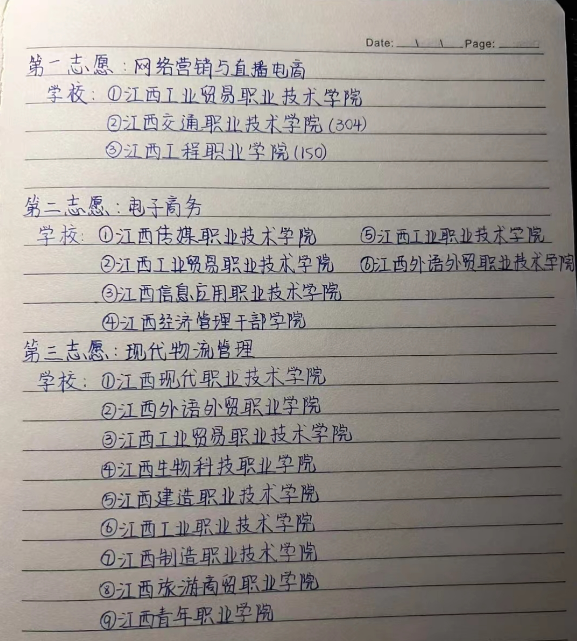 Date: \ \ Page:
第一志愿：网络营销与直播电商
学校：①江西工业贸易职业技术学院
②江西交通职业技术学院(304)
③江西工程职业学院(150)
第二志愿：电子商务
学校：①江西传媒职业技术学院 ⑤江西工业职业技术学院
②江西工业贸易职业技术学院 ⑥江西外语外贸职业技术学院
③江西信息应用职业技术学院
④江西经济管理干部学院
第三志愿：现代物流管理
学校：①江西现代职业技术学院
②江西外语外贸职业学院
③江西工业贸易职业技术学院
④江西生物科技职业学院
⑤江西建造职业技术学院
⑥江西工业职业技术学院
⑦江西制造职业技术学院
⑧江西旅游商贸职业学院
⑨江西青年职业学院